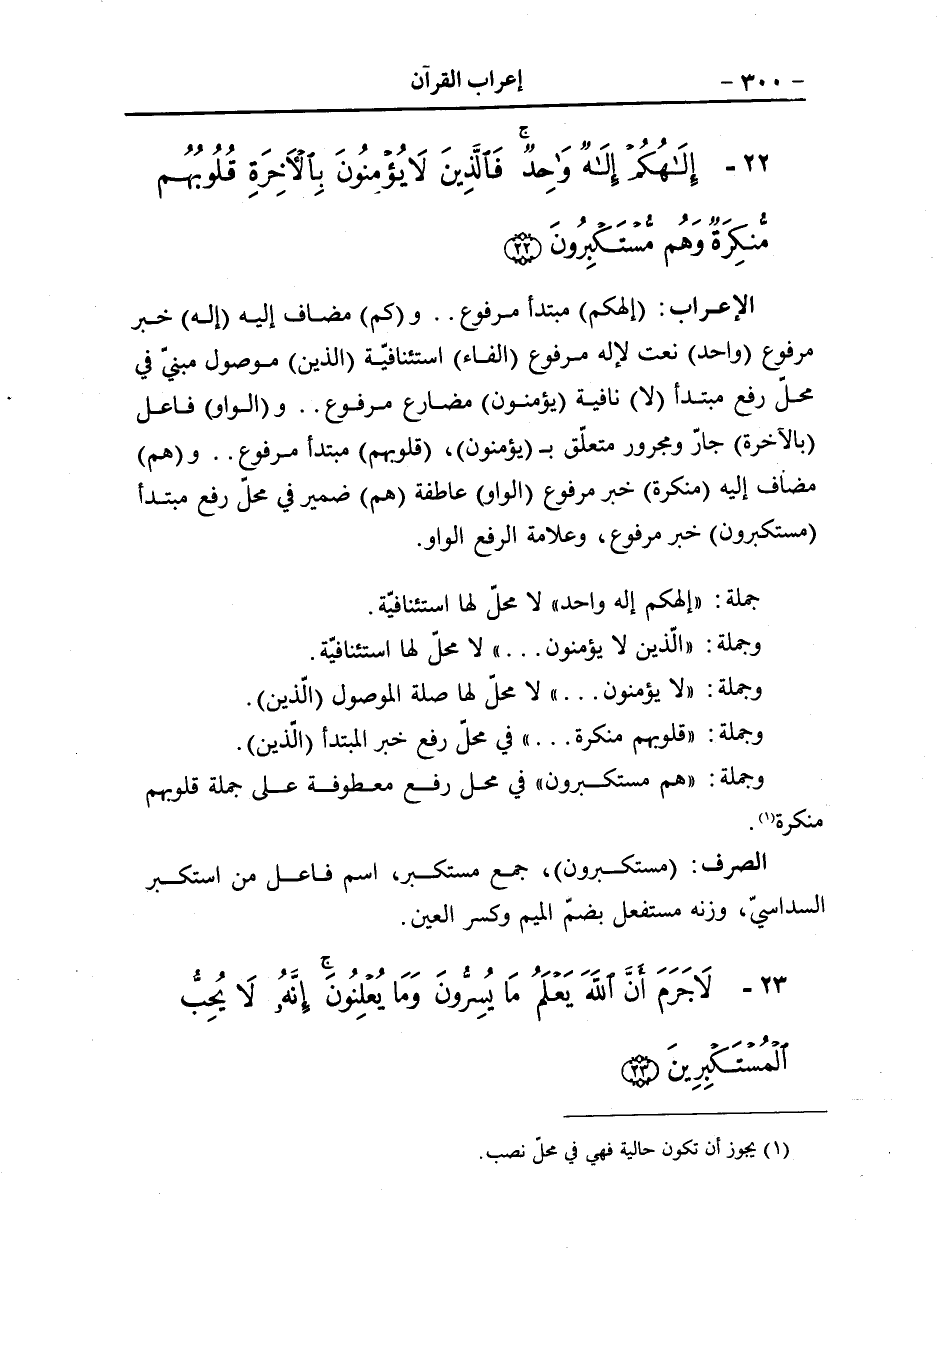 - ٣٠٠ - إعراب القرآن
٢٢ - إِلَٰهُكُمْ إِلَٰهٌ وَٰحِدٌ ۚ فَٱلَّذِينَ لَا يُؤْمِنُونَ بِٱلْأٓخِرَةِ قُلُوبُهُم
مُّنكِرَةٌ وَهُم مُّسْتَكْبِرُونَ ﴿٢٢﴾
الإعـراب: (إلهكم) مبتدأ مرفوع.. و(كم) مضاف إليه (إله) خبر
مرفوع (واحد) نعت لإله مرفوع (الفاء) استئنافيّة (الذين) موصول مبنيّ في
محلّ رفع مبتدأ (لا) نافية (يؤمنون) مضارع مرفوع.. و(الواو) فاعل
(بالآخرة) جارّ ومجرور متعلّق بـ (يؤمنون)، (قلوبهم) مبتدأ مرفوع.. و(هم)
مضاف إليه (منكرة) خبر مرفوع (الواو) عاطفة (هم) ضمير في محلّ رفع مبتدأ
(مستكبرون) خبر مرفوع، وعلامة الرفع الواو.
جملة: «إلهكم إله واحد» لا محلّ لها استئنافيّة.
وجملة: «الّذين لا يؤمنون...» لا محلّ لها استئنافيّة.
وجملة: «لا يؤمنون...» لا محلّ لها صلة الموصول (الّذين).
وجملة: «قلوبهم منكرة...» في محلّ رفع خبر المبتدأ (الّذين).
وجملة: «هم مستكبرون» في محل رفع معطوفة على جملة قلوبهم
منكرة(١).
الصرف: (مستكبرون)، جمع مستكبر، اسم فاعل من استكبر
السداسيّ، وزنه مستفعل بضمّ الميم وكسر العين.
٢٣ - لَا جَرَمَ أَنَّ ٱللَّهَ يَعْلَمُ مَا يُسِرُّونَ وَمَا يُعْلِنُونَ ۚ إِنَّهُۥ لَا يُحِبُّ
ٱلْمُسْتَكْبِرِينَ ﴿٢٣﴾
(١) يجوز أن تكون حالية فهي في محلّ نصب.